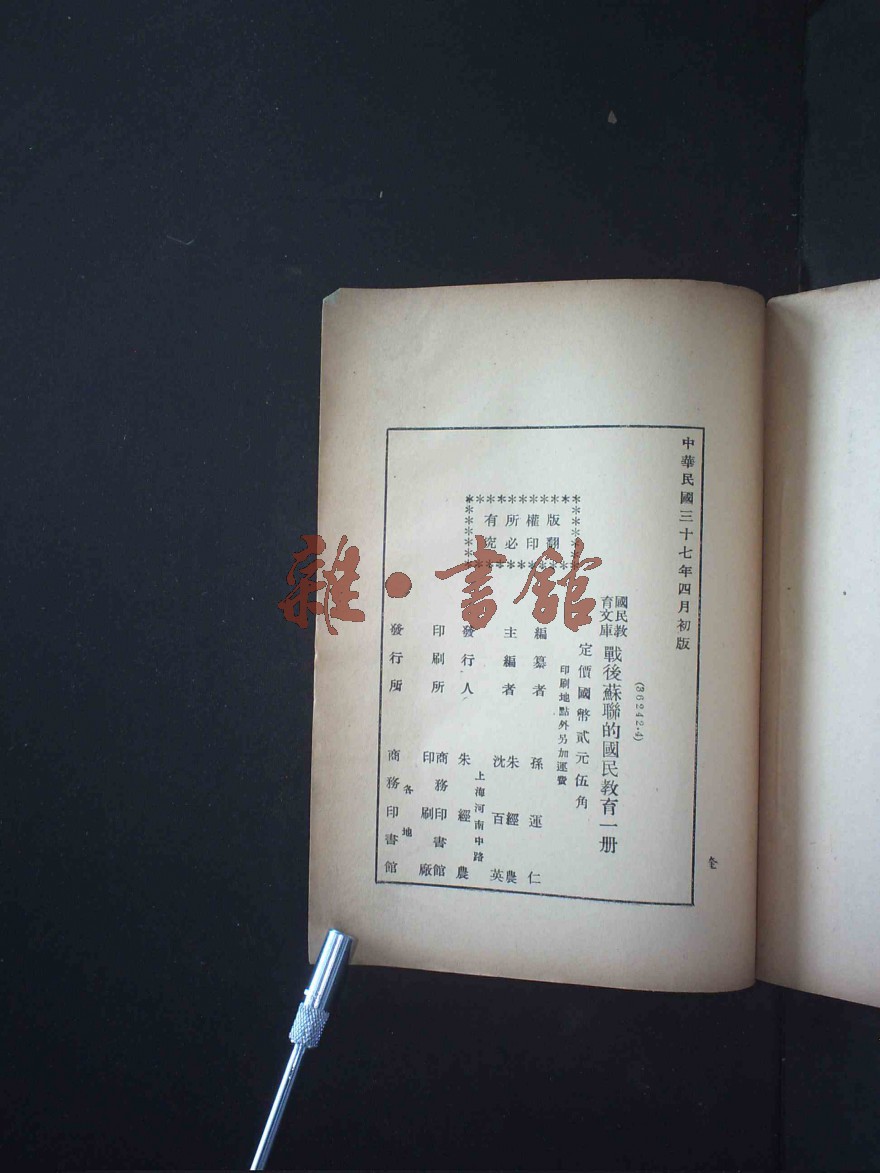 中華民國三十七年四月初版
(36242·4)
國民教育文庫 戰後蘇聯的國民教育一册
定價國幣貳元伍角
印刷地點外另加運費
版權所有
翻印必究
編纂者 孫運仁
主編者 朱經農 沈百英
發行人 朱經農
上海河南中路
印刷所 商務印書館印刷廠
各地
發行所 商務印書館
雜·書館